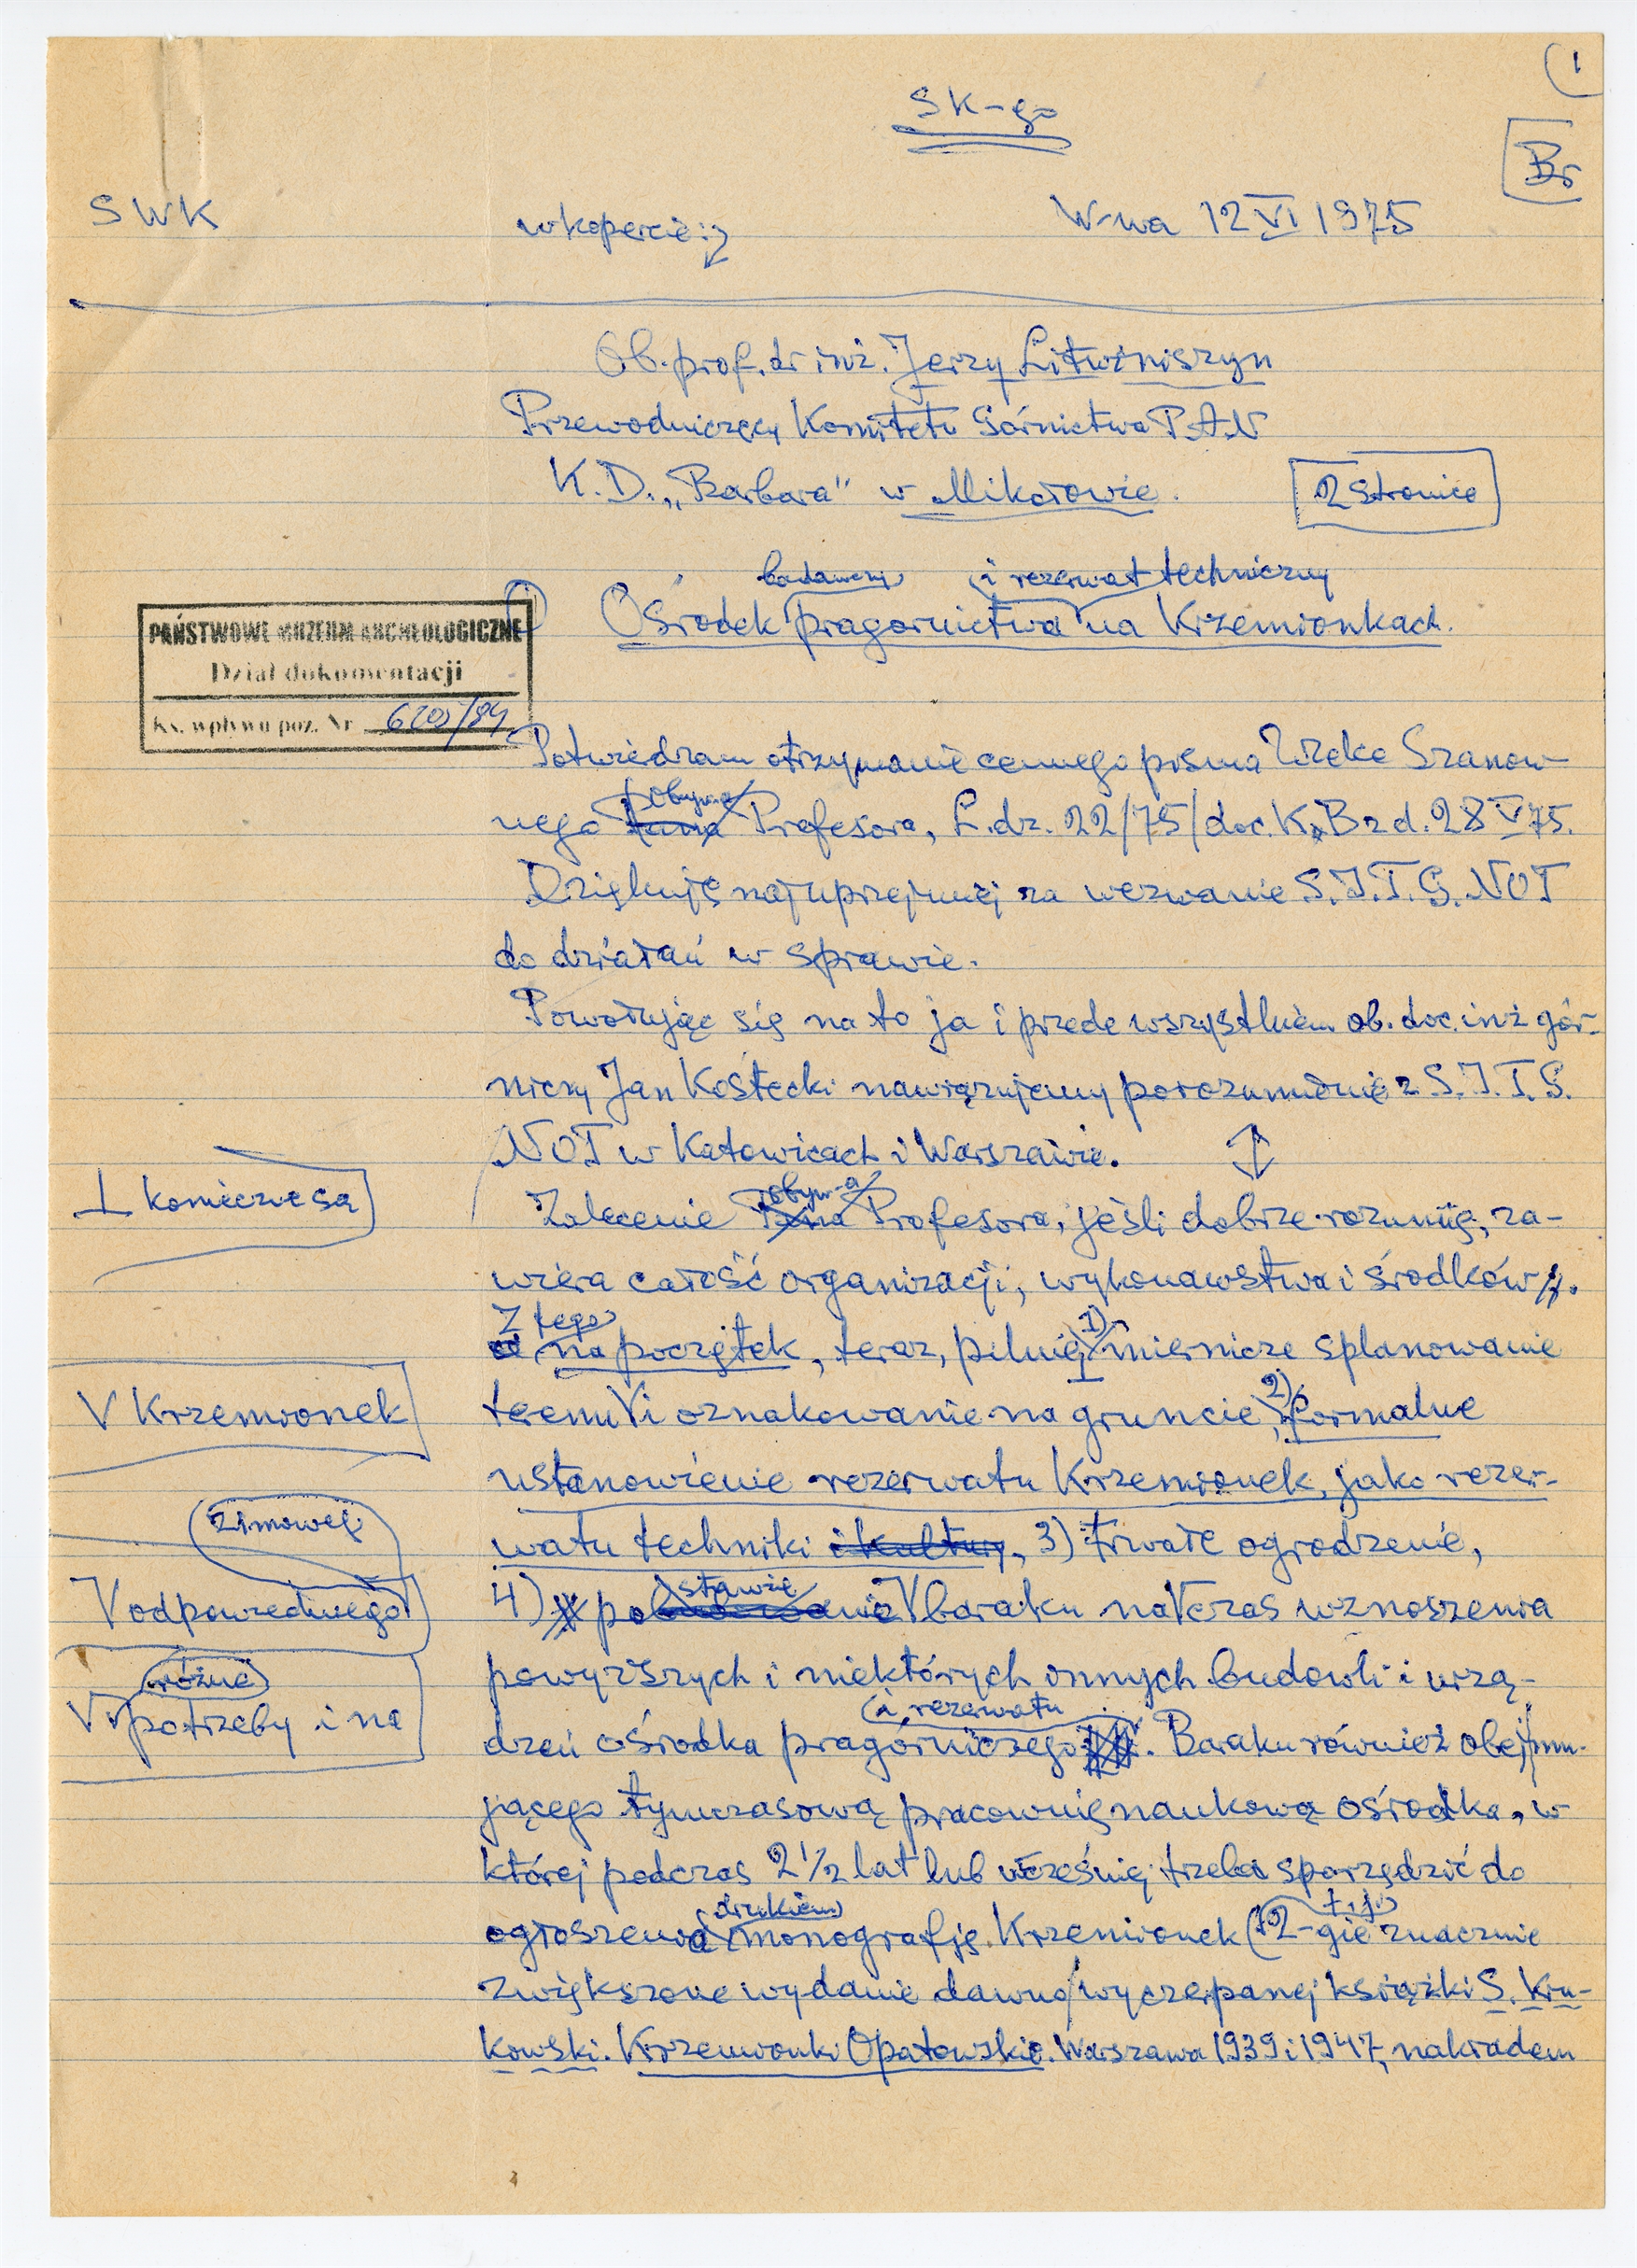 1
SK-go
Br
SWK
w kopercie:
W-wa 12 VI 1975
Ob. prof. dr inż. Jerzy Litwiniszyn
Przewodniczący Komitetu Górnictwa P.A.N
K.D. „Barbara" w Mikołowie.
2 stronice
badawczy i rezerwat techniczny
Ośrodek pragórnictwa na Krzemionkach.
PAŃSTWOWE MUZEUM ARCHEOLOGICZNE
Dział dokumentacji
Ks. wpływu poz. Nr 6205/84
Potwierdzam otrzymanie cennego pisma Wielce Szanow-
nego Pana Profesora, L.dz. 22/75/doc.K.B z d. 28 V 75.
Dziękuję najuprzejmiej za wezwanie S.I.T.G. NOT
do działań w sprawie.
Powołując się na to ja i przede wszystkiem ob. doc. inż gór-
niczy Jan Kostecki nawiązujemy porozumienie z S.I.T.G.
NOT w Katowicach i Warszawie.
⊥ konieczne są
obyw-a
Zalecenie Pana Profesora, jeśli dobrze rozumię, za-
wiera całość organizacji, wykonawstwa i środków.
Z tego
na początek, teraz, pilnie ⊥ 1) miernicze splanowanie
V Krzemionek
terenu V i oznakowanie na gruncie, 2) formalne
ustanowienie rezerwatu Krzemionek, jako rezer-
zimowej
watu techniki i kultury, 3) trwałe ogrodzenie,
V odpowiedniego
stawie
4) po V baraku na V czas wznoszenia
różne
V potrzeby i na
powyższych i niektórych innych budowli i urzą-
i rezerwatu
dzeń ośrodka pragórniczego. Baraku również obejmu-
jącego tymczasową pracownię naukową ośrodka, w
której podczas 2 1/2 lat lub wcześniej trzeba sporządzić do
drukiem t.j.
ogłoszenia monografję Krzemionek (2-gie znacznie
zwiększone wydanie dawno wyczerpanej książki S. Kru-
kowski. Krzemionki Opatowskie. Warszawa 1939 i 1947, nakładem